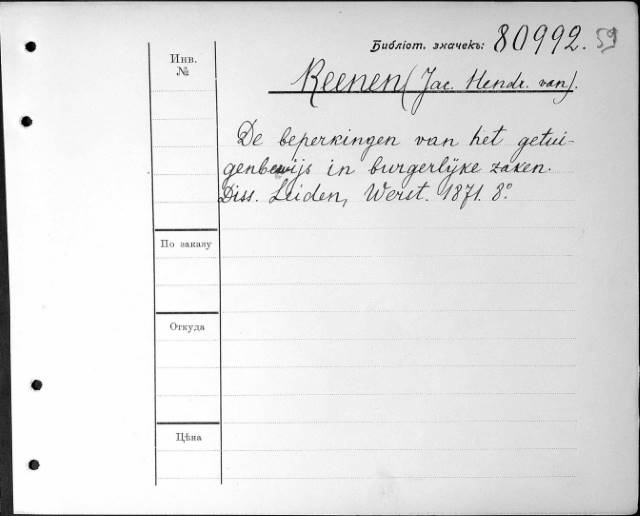 Библіот. значекъ: 80992. 59
Инв.
№
Reenen (Jac. Hendr. van).
De beperkingen van het getui-
genbewijs in burgerlijke zaken.
Diss. Leiden, 1871. 8º.
По заказу
Откуда
Цѣна